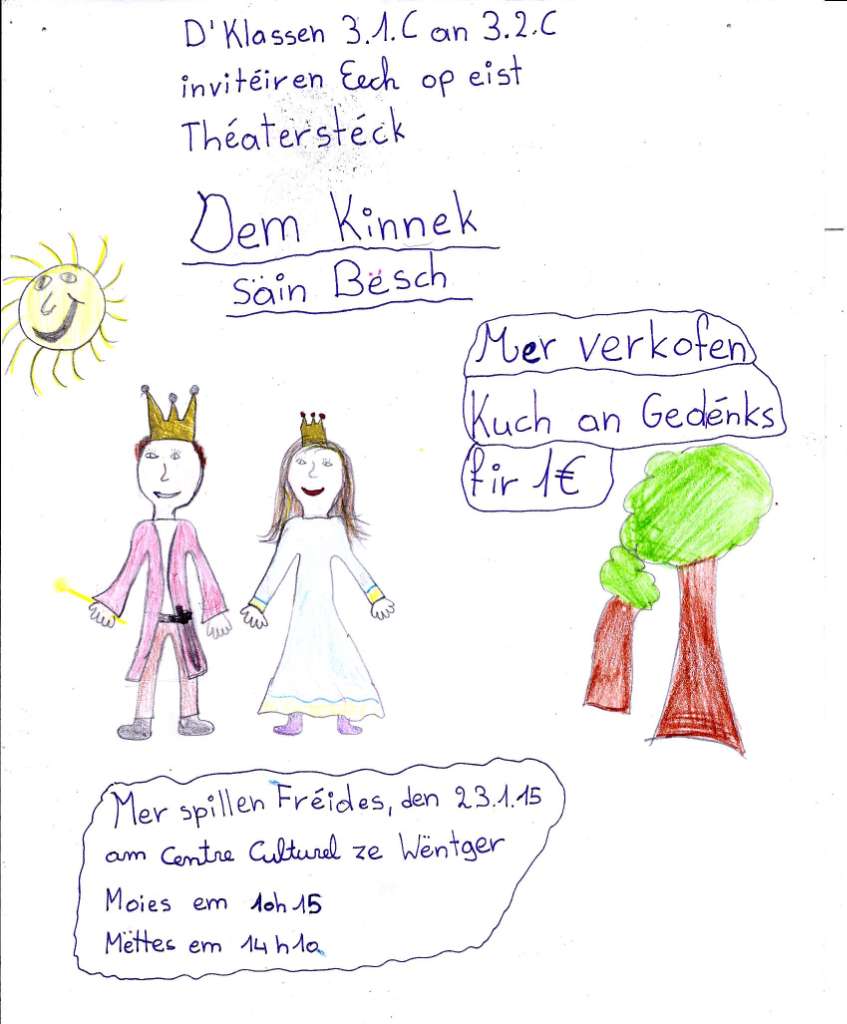 D'Klassen 3.1.C an 3.2.C
invitéiren Eech op eist
Théaterstéck
Dem Kinnek
säin Bësch
Mer verkofen
Kuch an Gedénks
fir 1€
Mer spillen Fréides, den 23.1.15
am Centre Culturel ze Wëntger
Moies em 10h15
Mëttes em 14h10